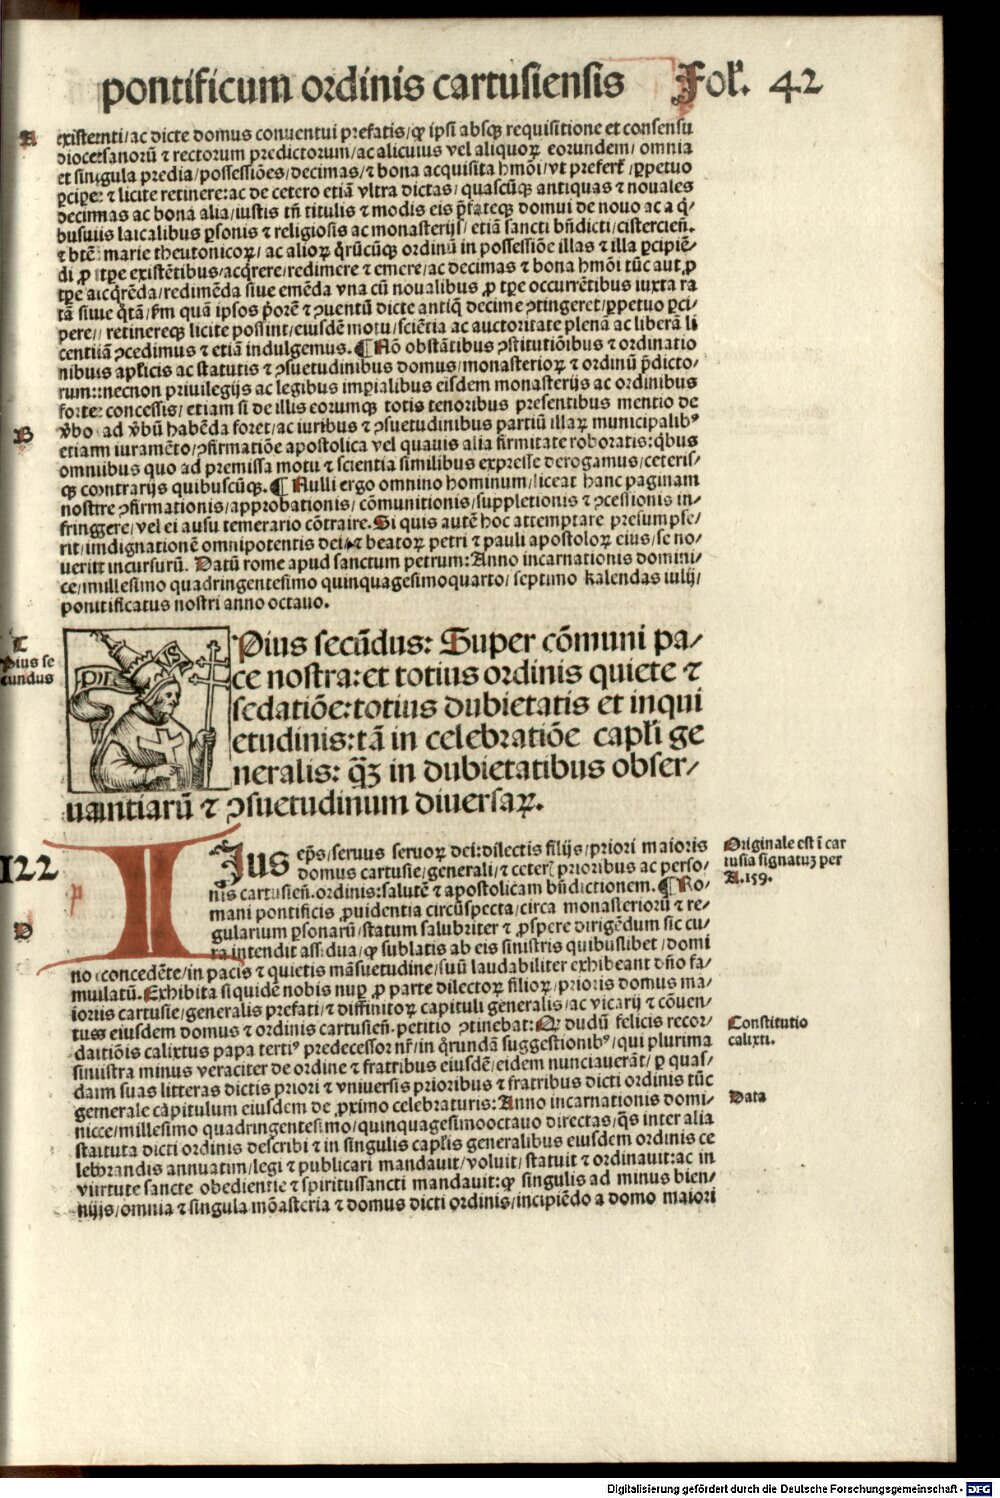 pontificum ordinis cartusiensis Foł. 42
A
existenti/ac dicte domus conuentui prefatis/ꝙ ipsi absqꝫ requisitione et consensu
diocesanorū ⁊ rectorum predictorum/ac alicuius vel aliquoꝝ eorundem/omnia
et singula predia/possessiões/decimas/⁊ bona acquisita hmōi/vt prefert̄/ꝑpetuo
ꝑciꝑe: ⁊ licite retinere:ac de cetero etiā vltra dictas/quascūqꝫ antiquas ⁊ nouales
decimas ac bona alia/iustis tn̄ titulis ⁊ modis eis p̄fateqꝫ domui de nouo ac a q̇-
busuis laicalibus ꝑsonis ⁊ religiosis ac monasterijs/etiā sancti bn̄dicti/cistercien̄.
⁊ btē marie theutonicoꝝ/ac alioꝝ q̇rūcūqꝫ ordinū in possessiōe illas ⁊ illa ꝑcipiē-
di ꝓ tꝑe existētibus/acq̇rere/redimere ⁊ emere/ac decimas ⁊ bona hmōi tūc aut ꝓ
tꝑe acq̇rēda/redimēda siue emēda vna cū noualibus ꝓ tꝑe occurrētibus iuxta ra
tā siue q̇tā/ẜm quā ipsos p̓orē ⁊ ꝯuentū dicte antiq̄ decime ꝯtingeret/ꝑpetuo ꝑci-
pere/retinereqꝫ licite possint/eiusdē motu/sciētia ac auctoritate plena ac liberā li
centiā ꝯcedimus ⁊ etiā indulgemus.¶Nō obstātibus ꝯstitutiōibus ⁊ ordinatio
nibus apl̄icis ac statutis ⁊ ꝯsuetudinibus domus/monasterioꝝ ⁊ ordinū p̄dicto-
rum:necnon priuilegijs ac legibus imꝑialibus eisdem monasterijs ac ordinibus
forte concessis/etiam si de illis eorumqꝫ totis tenoribus presentibus mentio de
v̓bo ad v̓bū habēda foret/ac iuribus ⁊ ꝯsuetudinibus partiū illaꝝ municipalibꝰ
B
etiam iuramēto/ꝯfirmatiōe apostolica vel quauis alia firmitate roboratis:q̇bus
omnibus quo ad premissa motu ⁊ scientia similibus expresse derogamus/ceteris-
qꝫ contrarijs quibuscūqꝫ.¶Nulli ergo omnino hominum/liceat hanc paginam
nostre ꝯfirmationis/approbationis/cōmunitionis/suppletionis ⁊ ꝯcessionis in-
fringere/vel ei ausu temerario cōtraire.Si quis autē hoc attemptare presumpse/
rit/indignationē omnipotentis dei/⁊ beatoꝝ petri ⁊ pauli apostoloꝝ eius/se no/
uerit incursurū. Datū rome apud sanctum petrum:Anno incarnationis domini/
ce/millesimo quadringentesimo quinquagesimoquarto/septimo kalendas iulij/
pontificatus nostri anno octauo.
C
Pius se
cundus
PIE
VS
Pius secūdus: Super cōmuni pa-
ce nostra:et totius ordinis quiete ⁊
sedatiōe:totius dubietatis et inqui
etudinis:tā in celebratiōe capl̄i ge
neralis: q̄ꝫ in dubietatibus obser-
uantiarū ⁊ ꝯsuetudinum diuersaꝝ.
122
p
D
Originale est ī car
tusia signatuꝫ per
A.159.
Ius ep̄s/seruus seruoꝝ dei:dilectis filijs/priori maioris
domus cartusie/generali/⁊ ceteꝝ prioribus ac perso-
nis cartusien̄.ordinis:salutē ⁊ apostolicam bn̄dictionem.¶Ro-
mani pontificis ꝓuidentia circūspecta/circa monasteriorū ⁊ re-
gularium ꝑsonarū/statum salubriter ⁊ ꝓspere dirigēdum sic cu-
ra intendit assidua/ꝙ sublatis ab eis sinistris quibuslibet/domi
no concedēte/in pacis ⁊ quietis māsuetudine/suū laudabiliter exhibeant dn̄o fa-
mulatū.Exhibita siquidē nobis nuꝑ ꝓ parte dilectoꝝ filioꝝ/prioris domus ma-
ioris cartusie/generalis prefati/⁊ diffinitoꝝ capituli generalis/ac vicarij ⁊ cōuen-
tus eiusdem domus ⁊ ordinis cartusien̄.petitio ꝯtinebat:Qꝫ dudū felicis recor-
Constitutio
calixti.
datiōis calixtus papa tertiꝰ predecessor nr̄/in q̇rundā suggestionibꝰ/qui plurima
sinistra minus veraciter de ordine ⁊ fratribus eiusdē/eidem nunciauerāt/ꝑ quas/
dam suas litteras dictis priori ⁊ vniuersis prioribus ⁊ fratribus dicti ordinis tūc
Data
generale capitulum eiusdem de ꝓximo celebraturis:Anno incarnationis domi-
nice/millesimo quadringentesimo/quinquagesimooctauo directas/q̄s inter alia
statuta dicti ordinis describi ⁊ in singulis capl̄is generalibus eiusdem ordinis ce
lebrandis annuatim/legi ⁊ publicari mandauit/voluit/statuit ⁊ ordinauit:ac in
virtute sancte obedientie ⁊ spiritussancti mandauit:ꝙ singulis ad minus bien-
nijs/omnia ⁊ singula mōasteria ⁊ domus dicti ordinis/incipiēdo a domo maiori
Digitalisierung gefördert durch die Deutsche Forschungsgemeinschaft - DFG